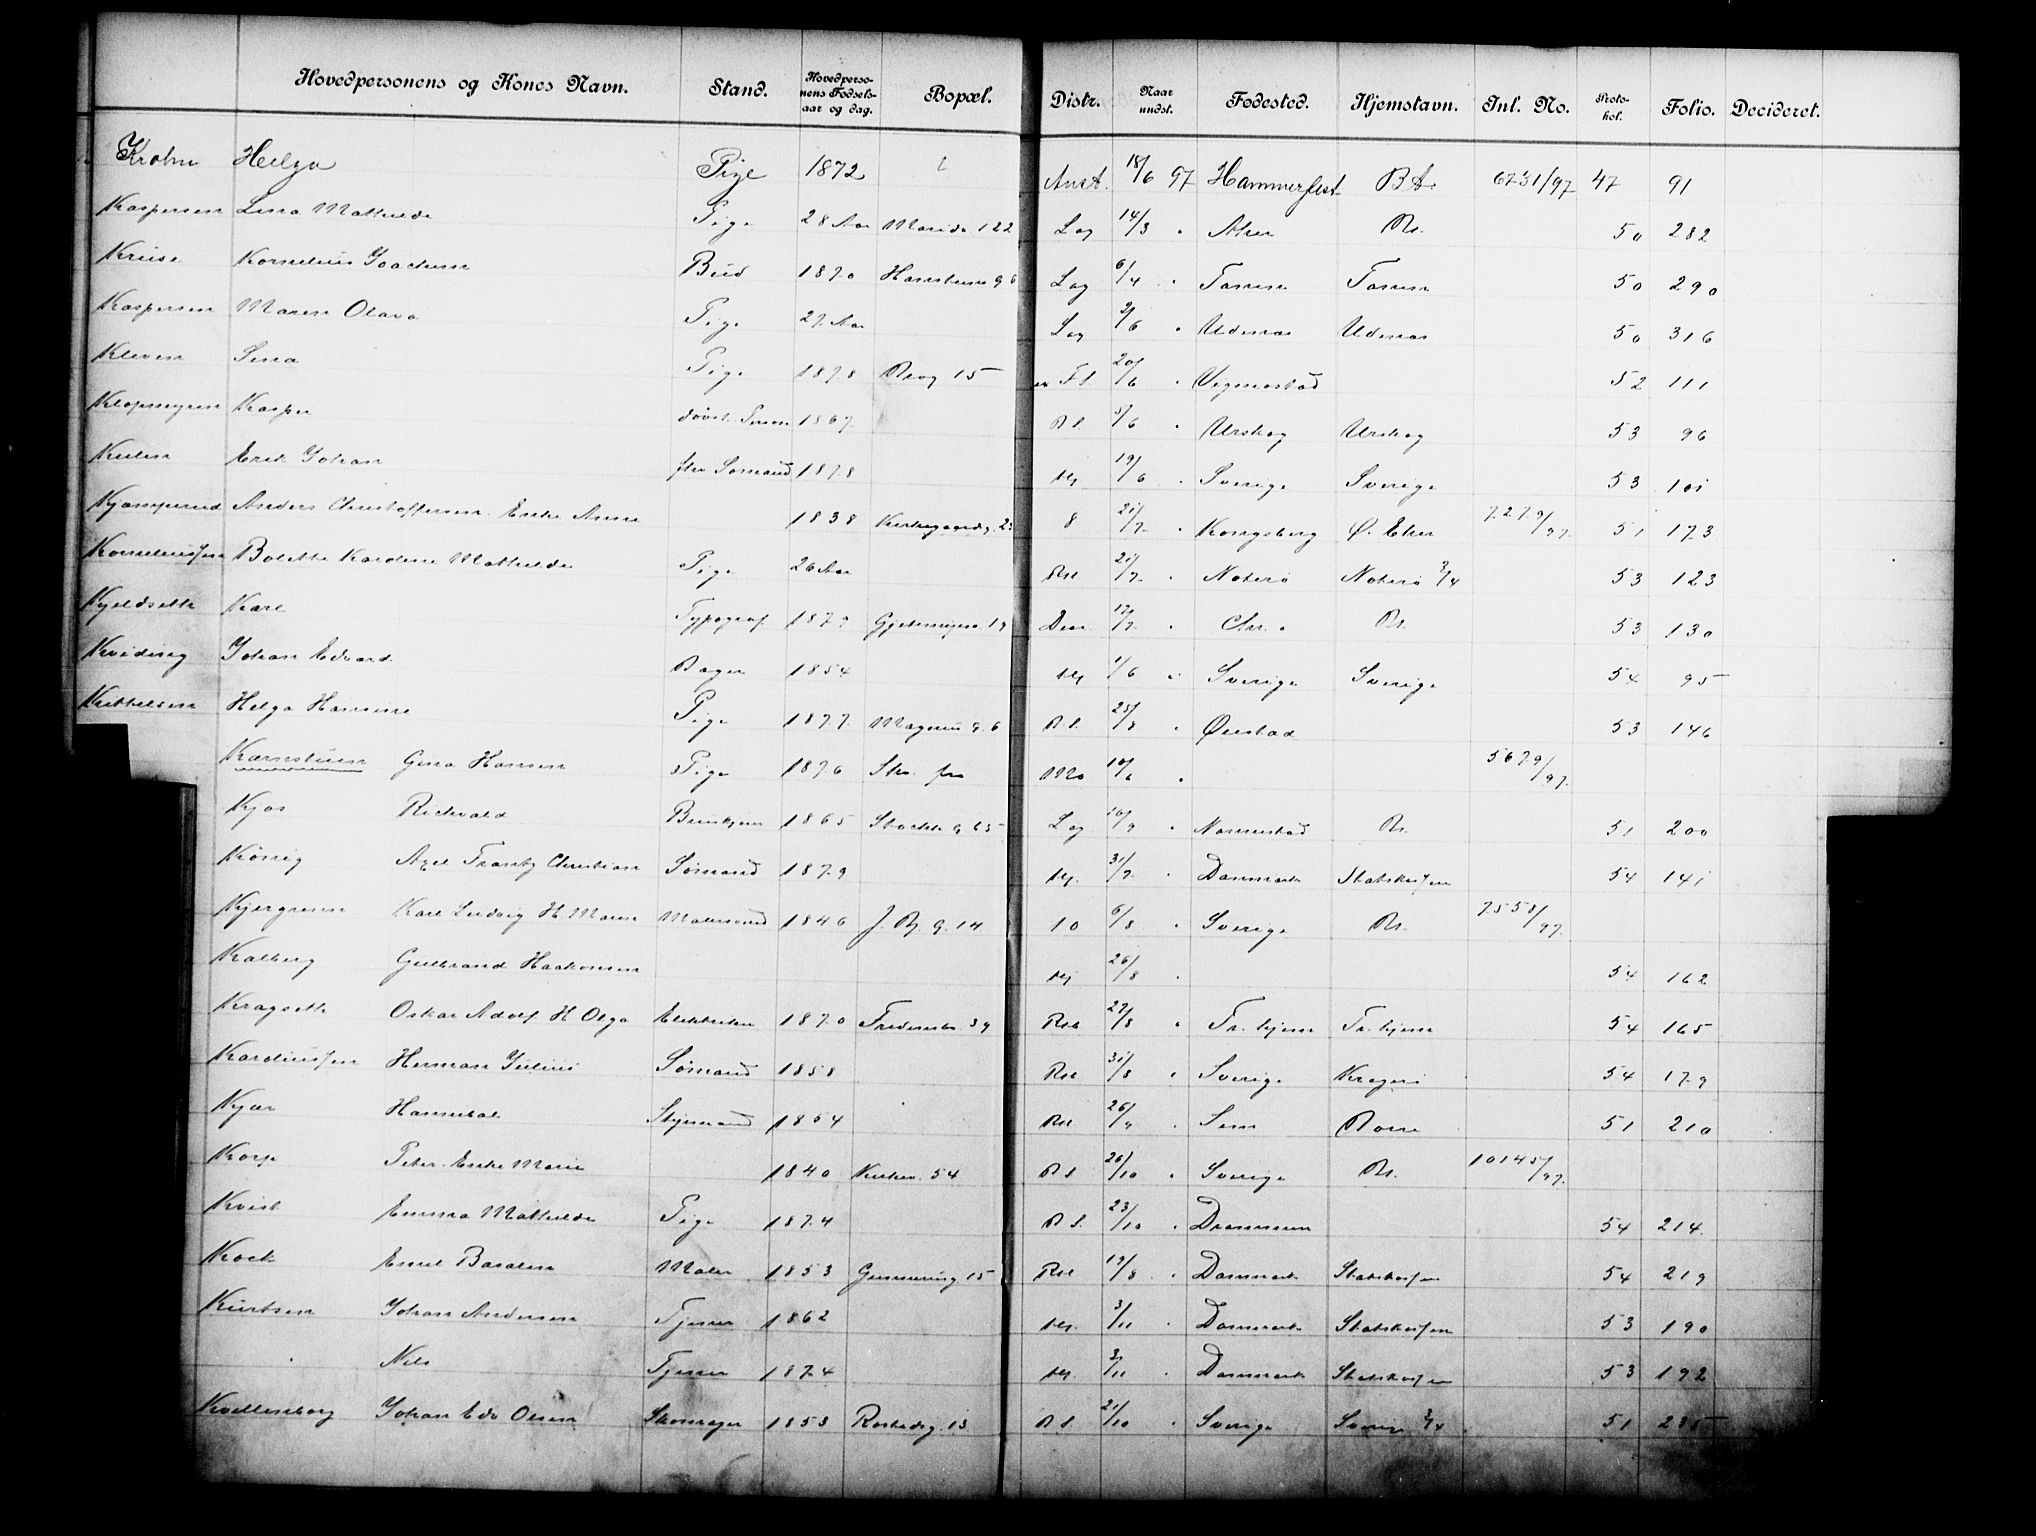 Hovedpersonens og Kones Navn. Stand. Hovedperso-nens Fødsels-aar og dag. Bopæl. Distr. Naar undst. Fødested. Hjemstavn. Inl. No. Proto-kol. Folio. Decideret.
Krohn Helga Pige 1872 Anst. 18/6 97 Hammerfest 6731/97 47 91
Kaspersen Lina Mathilde Pige 28 Aar Marida 122 Lag 14/3 " Aker 50 282
Kruse Kornelius Joachim Bud 1870 Lag 6/4 " 50 290
Kaspersen Maren Olava Pige 27 Aar Lag 2/6 " Udenæs Udenæs 50 316
Kleven Sina Pige 1878 15 20/6 " Vigmostad 52 111
Kasper døvst. Person 1867 5/6 " Urskog Urskog 53 96
Erik Johan fhv Sømand 1878 19/6 " Sverige Sverige 53 101
Kjamperud Anders Christoffersen Enke Anne 1838 Kirkegaardsg. 8 21/7 " Kongsberg Ø. Eker 7279/97 51 173
Korneliussen Bolette Karoline Mathilde Pige 26 Aar 21/7 " Noterø Noterø 3/4 53 123
Kjeldseth Karl Typograf 1879 Gjetemyrsv. 19 17/7 " Chr.a 53 130
Kviding Johan Edvard Bager 1854 1/6 " Sverige Sverige 54 95
Kittelsen Helga Hansine Pige 1877 Magnus g. 6 25/8 " Øiestad 53 146
Kærnstuen Gina Hansen Pige 1876 10/6 " 5679/97
Kjos Richvald 1865 65 Lag 10/9 " 51 200
König Axel Tranby Christian Sømand 1879 31/7 " Danmark Statskassen 54 141
Kjergrenn Karl Ludvig H. Maren Malersvend 1846 J. B. g. 14 10 6/8 " Sverige 7558/97 51
Kalberg Gulbrand Haakonsen 26/8 " 54 162
Kragseth Oskar Adolf H Olga Elektriker 1870 39 27/8 " Tr.hjem Tr.hjem 54 165
Karoliussen Herman Julius Sømand 1858 31/8 " Sverige Kragerø 54 179
Kjær Hannibal Styrmand 1854 26/9 " Sem Borre 51 210
Korp Peter Enke Marie 1840 Kirkev. 54 26/10 " Sverige 10145/97
Kvist Emma Mathilde Pige 1874 23/10 " Drammen 54 214
Kock Emil Maler 1853 Gunnerusg 15 19/8 " Danmark Statskassen 54 219
Kurtsen Johan Andersen Tjener 1862 3/11 " Danmark Statskassen 53 190
" Nils Tjener 1874 3/11 " Danmark Statskassen 53 192
Kvellenborg Johan Edv Olsen Skomager 1853 Rostedsg. 13 21/10 " Sverige 3/4 51 235